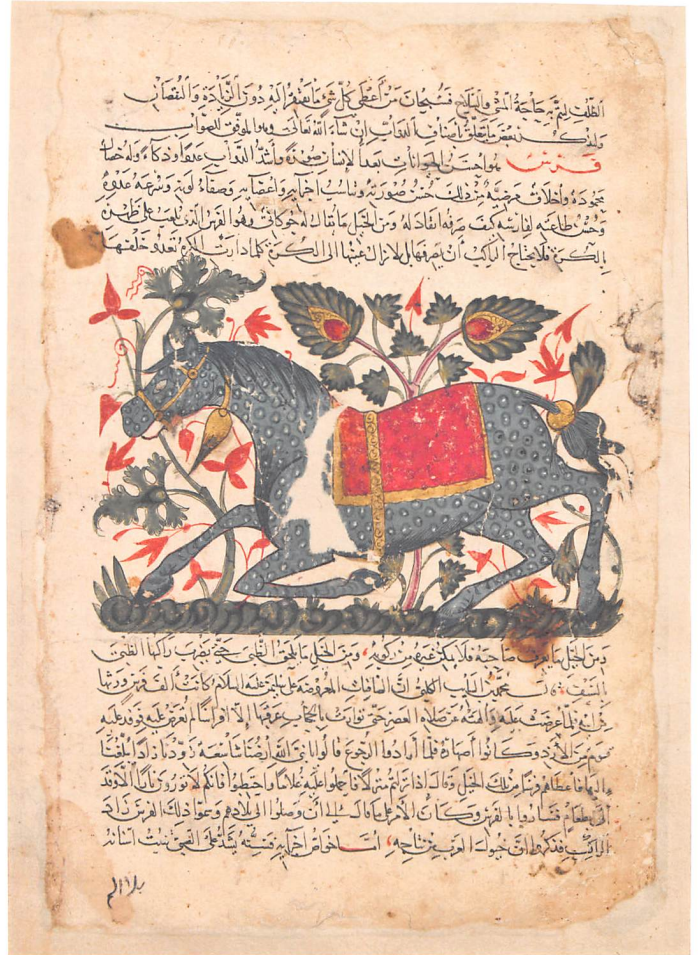 الظلف ليتم بر حاجة المشي والسلاح فسبحان من أعطى كل شيء ما يفتقر إليه دون الزيادة والنقصان
ولنذكر بعض ما يتعلق بأصناف الدواب إن شاء الله تعالى وهو الموفق للصواب
فرس هو أحسن الحيوانات بعد الإنسان صورة وأشد الدواب عدوا وذكاء وله خصال
محمودة وأخلاق مرضية من ذلك حسن صورته وتناسب أجزائه وأعضائه وصفاء لونه وسرعة عدوه
وحسن طاعته لفارسه كيف صرفه انقاد له ومن الخيل ما يقال له جوكاني وهو الفرس الذي يلعب على ظهره
بالكرة فلا يحتاج الراكب أن يصرفها بل لا تزال عينها إلى الكرة كلما دارت الكرة تعدو خلفها
ومن الخيل ما يعرف صاحبه فلا يمكن غيره من ركوبه ومن الخيل ما يلحق الظبي حتى يضرب راكبها الظبي
بالسيف محمد بن السائب الكلبي أن الصافنات المعروضة على سليمن عليه السلام كانت ألف فرس ورثها
فلما عرضت عليه وألهته عن صلاة العصر حتى توارت بالحجاب عرقبها إلا أفراسا لم تعرض عليه فوفد عليه
قوم من الأزد وكانوا أصهاره فلما أرادوا الرجوع قالوا يا نبي الله أرضنا شاسعة زودنا زادا يبلغنا
إليها فأعطاهم فرسا من تلك الخيل وقال إذا نزلتم منزلا فاحملوا عليه غلاما واحتطبوا فإنكم لا تورون ناركم إلا وقد
أتى بطعام فساروا بالفرس وكان الأمر على ما قال إلى أن وصلوا إلى بلادهم وعوا ذلك الفرس زاد
الراكب فذكروا أن خيول العرب من نتاجه أما خواص أجزائه فسنه يشد على الصبي تنبت أسنانه